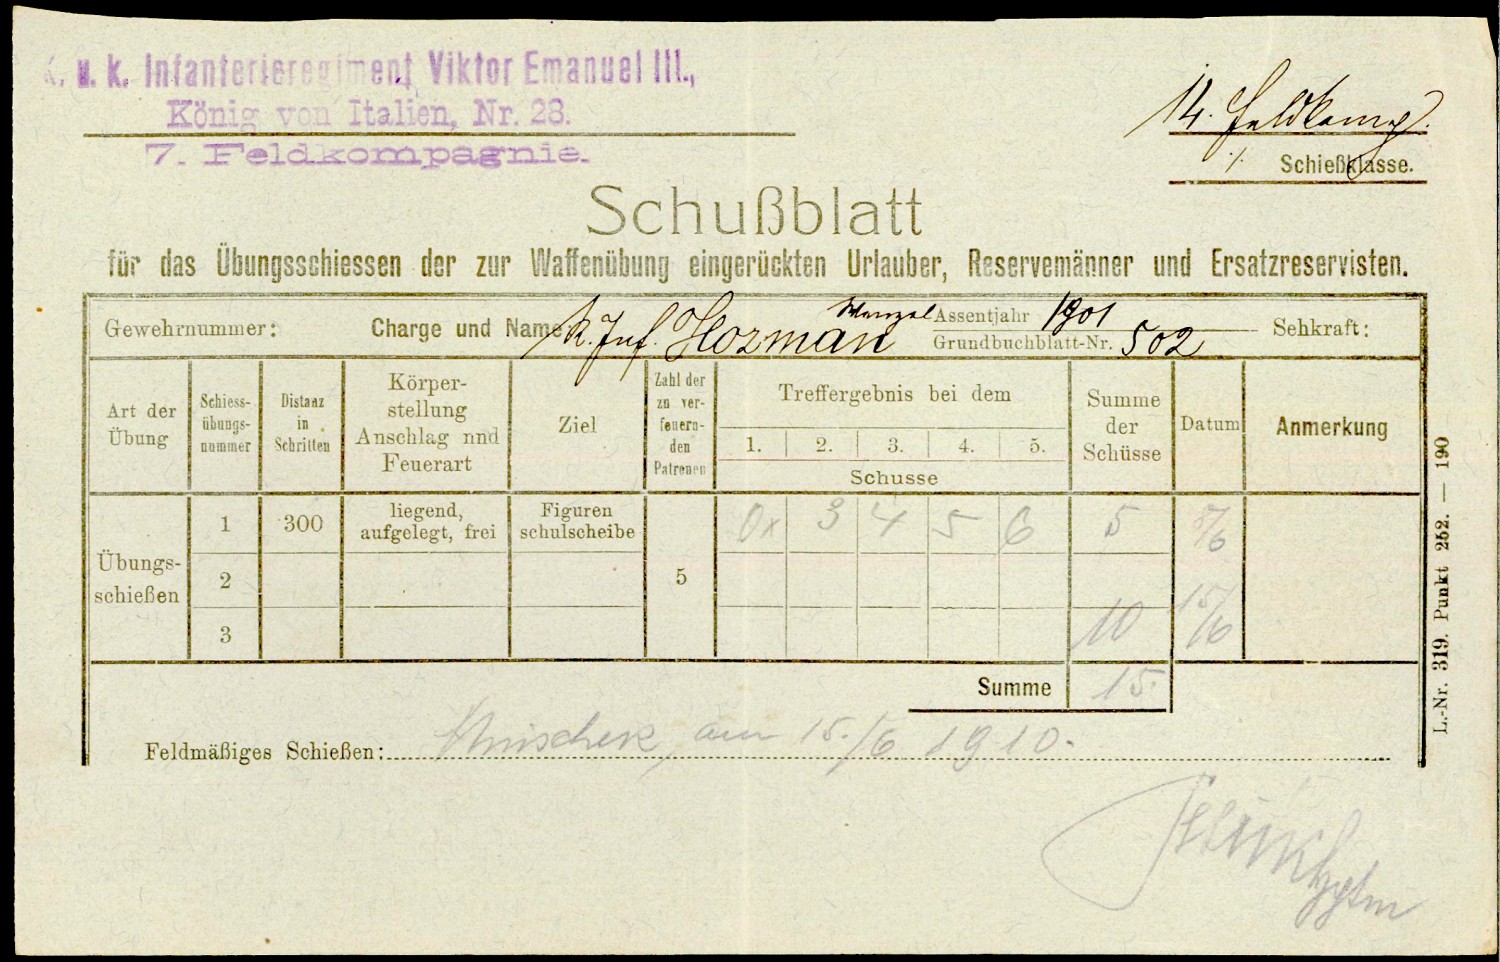 k. u. k. Infanterieregiment Viktor Emanuel III.,
König von Italien, Nr. 28.
7. Feldkompagnie.
14. Feldkomp.
Schießklasse.
Schußblatt
für das Übungsschiessen der zur Waffenübung eingerückten Urlauber, Reservemänner und Ersatzreservisten.
Gewehrnummer: Charge und Name: R. Inf. Hozman Wenzel Assentjahr 1901 Sehkraft:
Grundbuchblatt-Nr. 502
Art der Übung
Schiess-übungs-nummer
Distanz in Schritten
Körper-stellung Anschlag nnd Feuerart
Ziel
Zahl der zu ver-feuern-den Patronen
Treffergebnis bei dem
1. 2. 3. 4. 5.
Schusse
Summe der Schüsse
Datum
Anmerkung
Übungs-schießen
1 300 liegend, aufgelegt, frei Figuren schulscheibe 5 0x 3 4 5 6 5 5/6
2
3 10 15/6
Summe 15
Feldmäßiges Schießen: am 15./6 1910.
L.-Nr. 319. Punkt 252. — 190